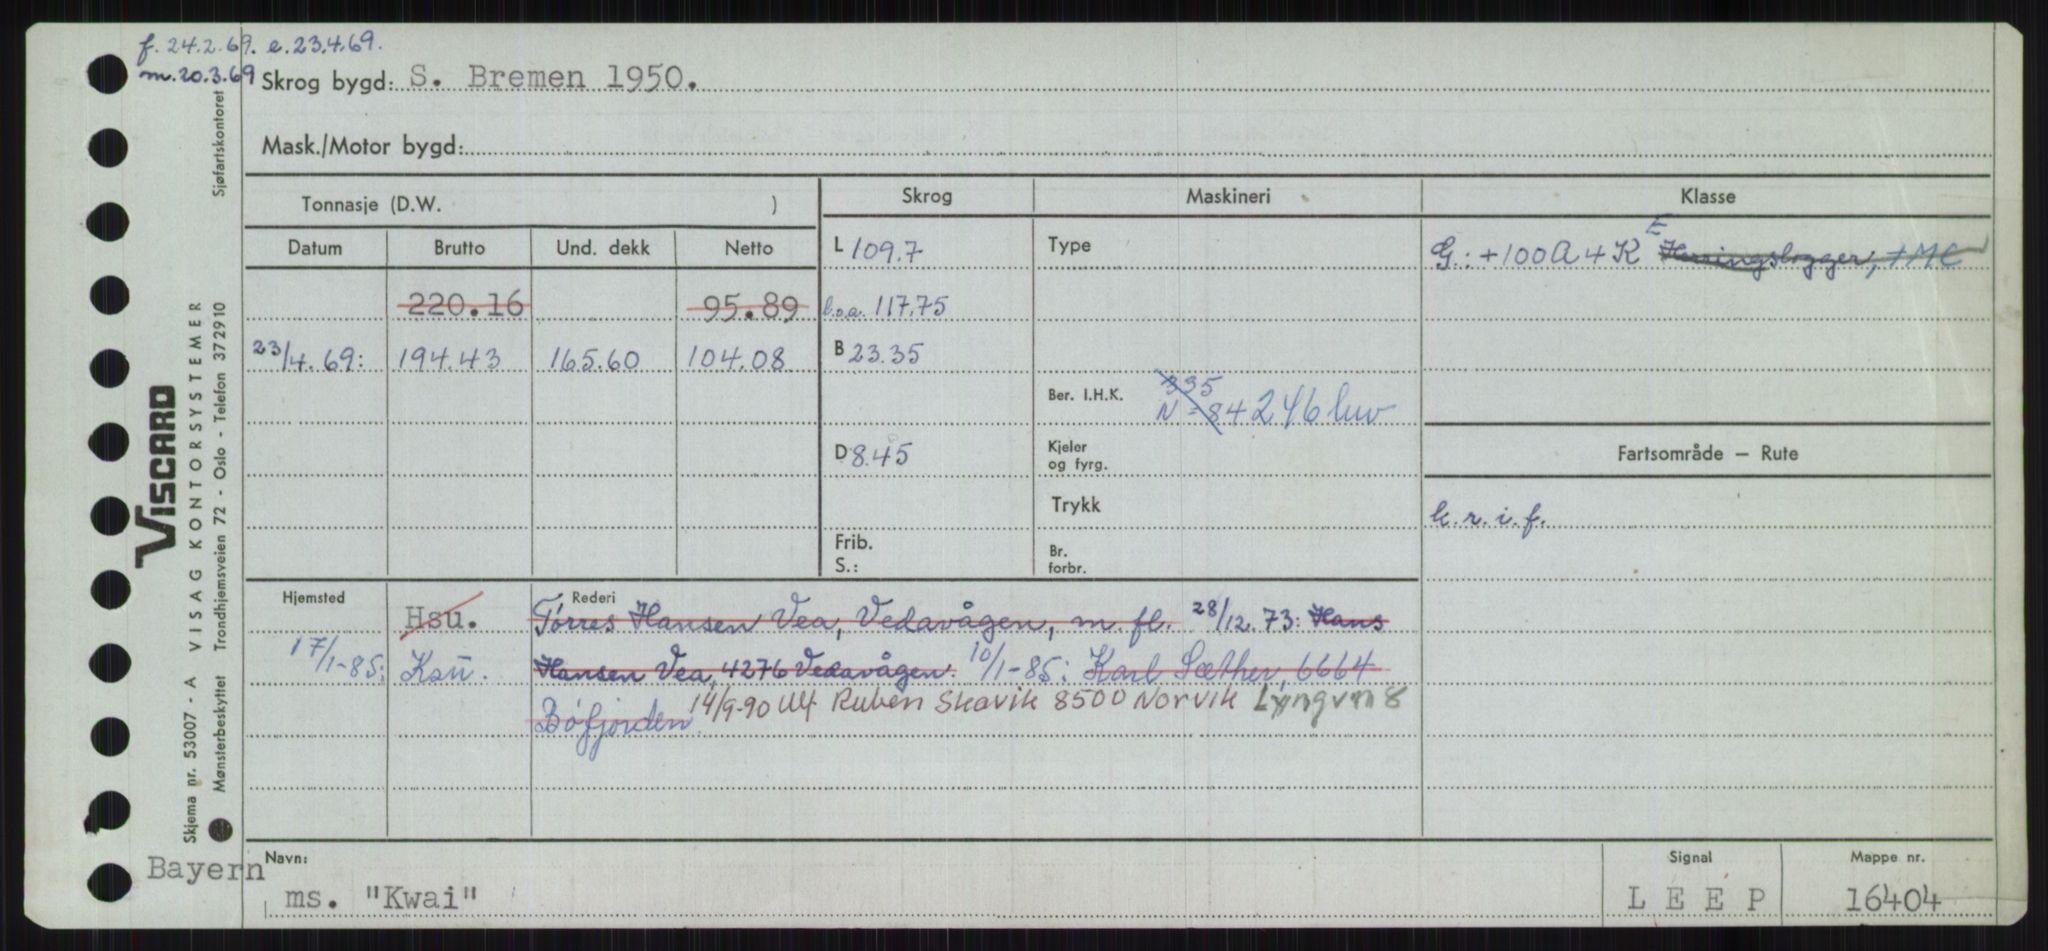 f. 24.2.69. e. 23.4.69.
m. 20.3.69
Skrog bygd: S. Bremen 1950.
Mask./Motor bygd:
Tonnasje (D.W. )
Skrog
Maskineri
Klasse
Datum Brutto Und. dekk Netto
L 109.7
Type
G.: +100A4 K E Herringslogger, +MC
220.16 95.89
l.o.a. 117.75
23/4.69: 194.43 165.60 104.08
B 23.35
Ber. I.H.K. 335
N = 84 246 luv
D 8.45
Kjeler
og fyrg.
Fartsområde — Rute
Trykk
k. r. i. f.
Frib.
S.:
Br.
forbr.
Hjemsted
Rederi
Hsu. Tórres Hansen Vea, Vedavågen, m. fl. 28/12.73: Hans
17/1-85: Ksu. Hansen Vea, 4276 Vedavågen. 10/1-85: Karl Sæther, 6664
Bófjorden. 14/9-90 Ulf Ruben Skavik 8500 Norvik Lyngvn 8
Navn:
Bayern
ms. "Kwai"
Signal
L E E P
Mappe nr.
16404
VISCARD
Skjema nr. 53007 - A VISAG KONTORSYSTEMER
Mønsterbeskyttet Trondhjemsveien 72 - Oslo - Telefon 372910
Sjøfartskontoret